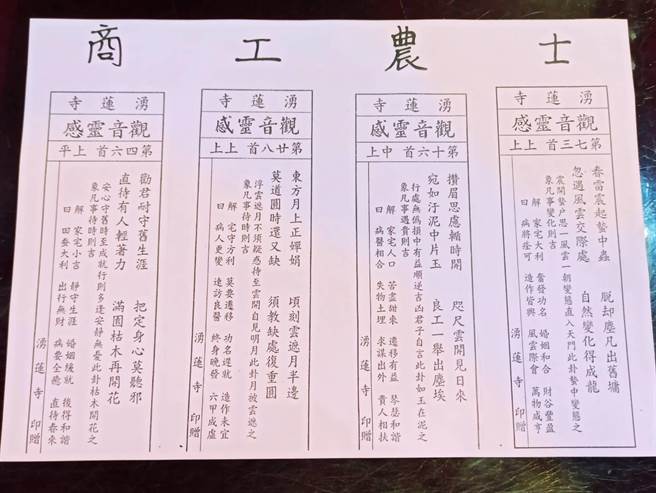 士 農 工 商
湧蓮寺
觀音靈感
第七三首 上上
春雷震起蟄中蟲 脫却塵凡出舊墉
忽遇風雲交際處 自然變化得成龍
震開蟄户思一風雲一朝變態直入天門此卦蟄中變態之
象凡事變化則吉
解 家宅大利 奮發功名 婚姻和合 財谷豐盈
曰 病將痊可 造作皆興 風雲際會 萬物咸亨
湧蓮寺 印贈
湧蓮寺
觀音靈感
第十六首 中上
攢眉思慮時開 咫尺雲開見日來
宛如汙泥中片玉 良工一舉出塵埃
行處無偏損中有益順逆吉凶君子自言此卦如玉在泥之
象凡事遇貴則吉
解 家宅人口 苦盡甜來 遷移有益 琴瑟和諧
曰 病醫相合 失物土埋 求謀出外 貴人相扶
湧蓮寺 印贈
湧蓮寺
觀音靈感
第廿八首 上上
東方月上正嬋娟 頃刻雲遮月半邊
莫道圓時還又缺 須教缺處復重圓
浮雲遮月不須疑惑待至雲開自見明月此卦月被雲遮之
象凡事待時則吉
解 宅守方利 莫要遷移 功名遲就 造作未宜
曰 病人更變 遠訪良醫 終身晚發 六甲成虛
湧蓮寺 印贈
湧蓮寺
觀音靈感
第四六首 上平
勸君耐守舊生涯 把定身心莫聽邪
直待有人輕著力 滿園枯木再開花
安心守舊時至成就行則多迍安靜無憂此卦枯木開花之
象凡事待時則吉
解 家宅小吉 靜守生涯 婚姻緩就 後得和諧
曰 田蚕大利 出行無財 病要全癒 直待春來
湧蓮寺 印贈